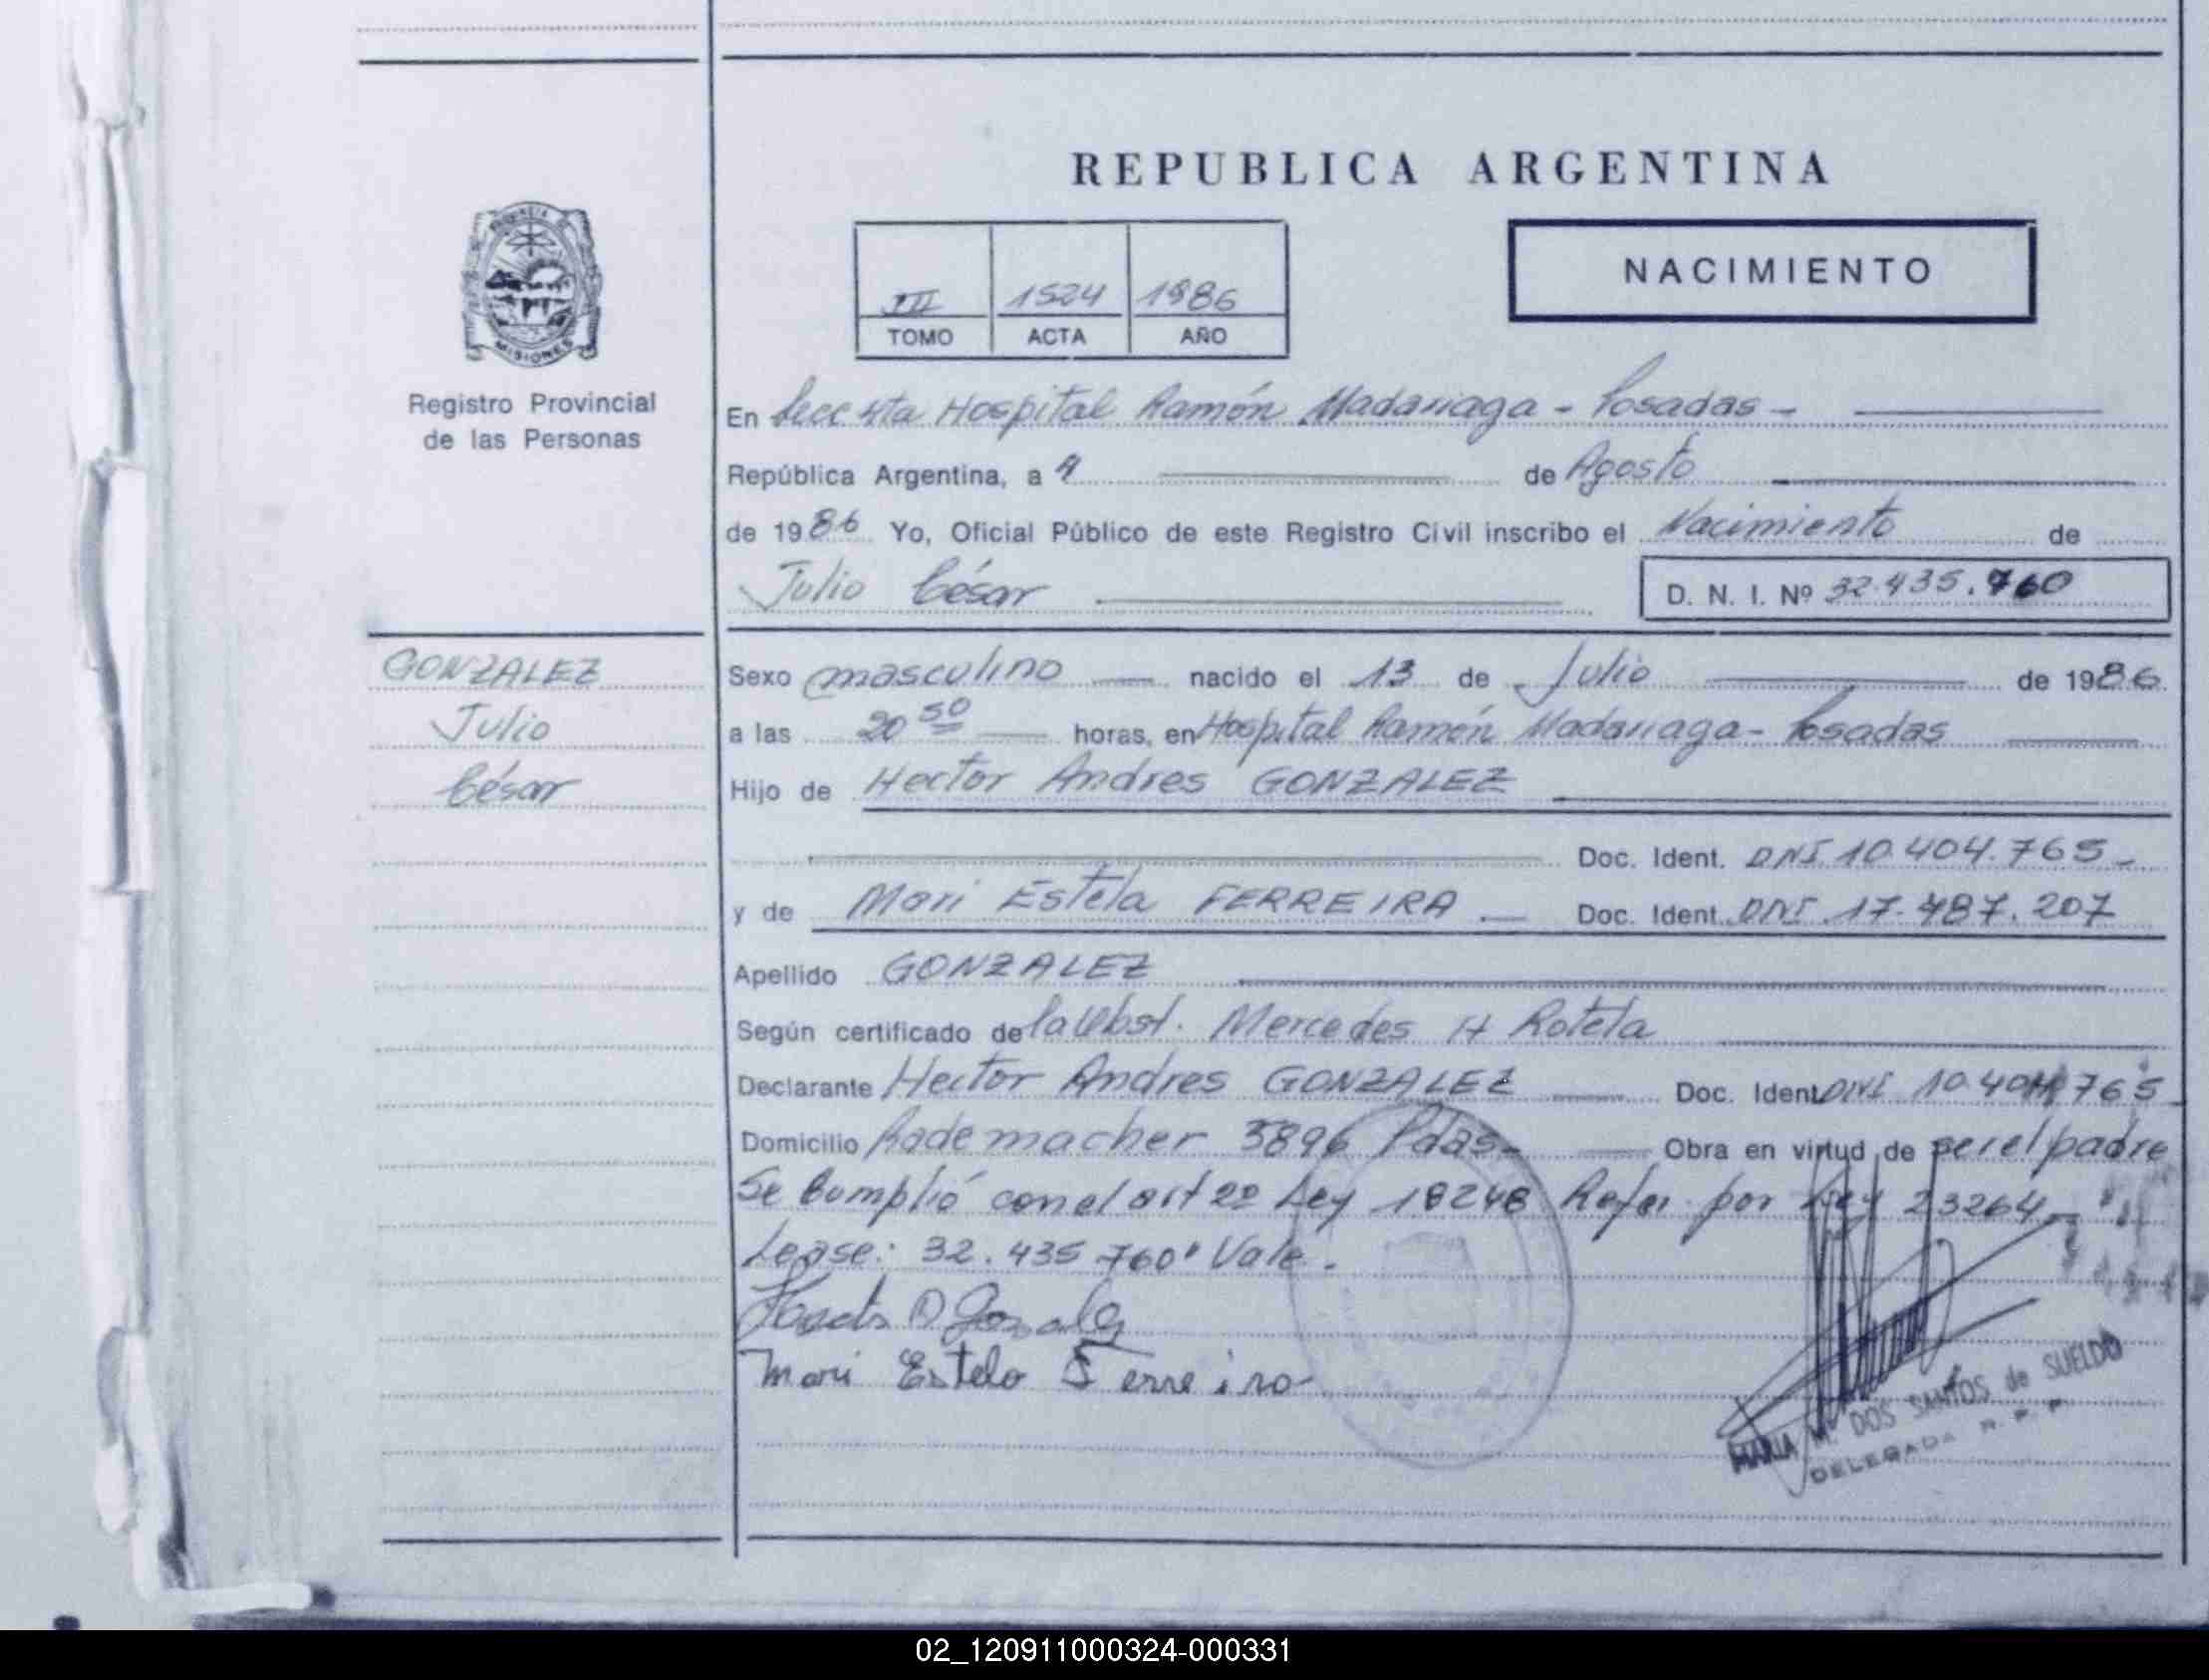 REPUBLICA ARGENTINA
PROVINCIA DE
MISIONES
Registro Provincial
de las Personas
III 1524 1986
TOMO ACTA AÑO
NACIMIENTO
En Secc 4ta Hospital Ramón Madariaga - Posadas -
República Argentina, a 4 de Agosto
de 1986 Yo, Oficial Público de este Registro Civil inscribo el Nacimiento de
Julio César D. N. I. Nº 32.435.760
GONZALEZ
Julio
César
Sexo masculino nacido el 13 de Julio de 1986.
a las 20 50 horas, en Hospital Ramón Madariaga - Posadas
Hijo de Hector Andres GONZALEZ
Doc. Ident. DNI 10.404.765 -
y de Mari Estela FERREIRA - Doc. Ident. DNI 17.487.207
Apellido GONZALEZ
Según certificado de la Obst. Mercedes H Rotela
Declarante Hector Andres GONZALEZ Doc. Ident. DNI 10.404.765
Domicilio Rademacher 3896 Pdas - Obra en virtud de ser el padre
Se Cumplió con el art 2º Ley 18248 Refor. por Ley 23264 -
Lease: 32.435 760" Vale.
Hector A Gonzalez
Mari Estela Ferreira
MARIA M. DOS SANTOS de SUELDO
DELEGADA R. P. P.
02_120911000324-000331